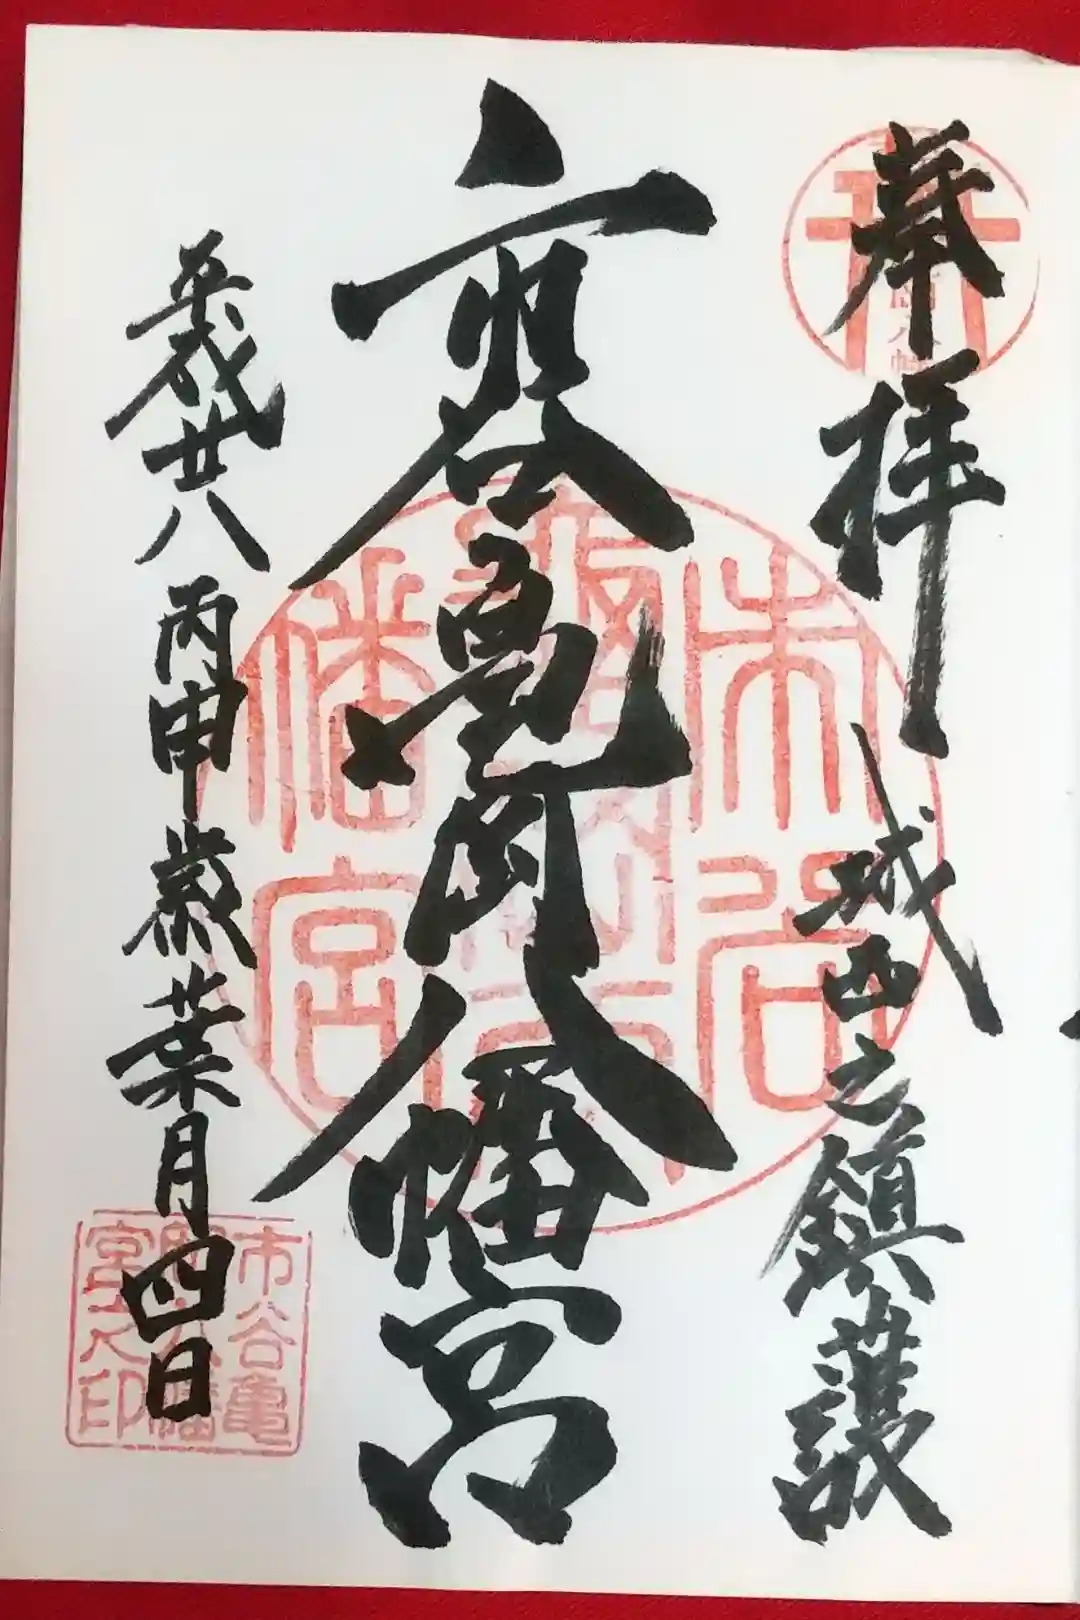 奉拝
城西之鎮護
市谷亀岡八幡宮
平成廿八丙申歳葉月四日
市谷亀岡八幡宮
市谷亀岡八幡宮之印